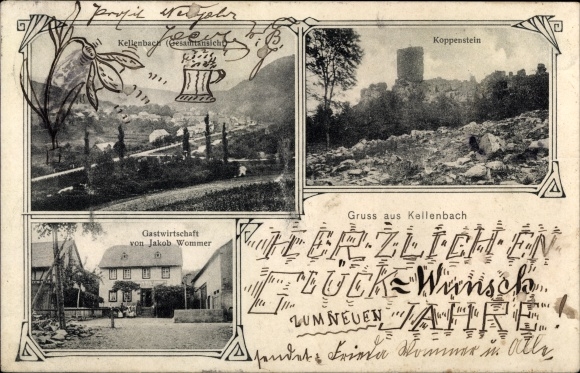 Prosit Neujahr
Kellenbach (Gesamtansicht)
Koppenstein
Gruss aus Kellenbach
Gastwirtschaft
von Jakob Wommer
HERZLICHEN
GLÜCK=Wunsch
ZUM NEUEN JAHRE!
sendet: Frieda Wommer u. Alle